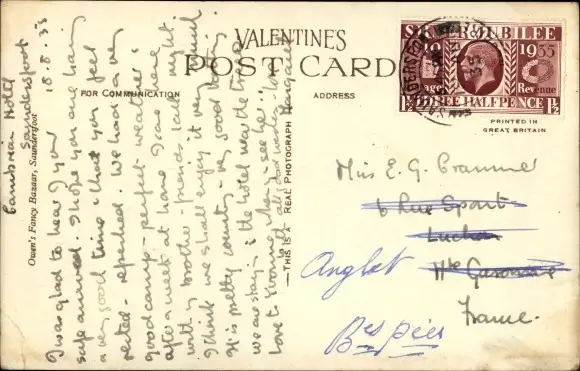 VALENTINES
POST CARD
FOR COMMUNICATION
ADDRESS
SILVER JUBILEE
1935
Revenue
THREE HALFPENCE 1½
PRINTED IN
GREAT BRITAIN
Owen's Fancy Bazaar, Saundersfoot
—THIS IS A REAL PHOTOGRAPH
Cambrian Hotel
Saundersfoot
18.8.35
I was glad to hear of your
safe arrival. I hope you are having
a very good time & that you feel
rested - refreshed. We had a very
good camp - perfect weather &
after a week at home I came here
with my brother - friends last night
I think we shall enjoy it very much
It is pretty country - very good bathing.
we are staying in the hotel near the trees
Love to Yvonne when you see her.
Margaret
Miss E. G.
6 Rue Spont
Luchon
Hte Garonne
France.
Anglet
Bses Pies